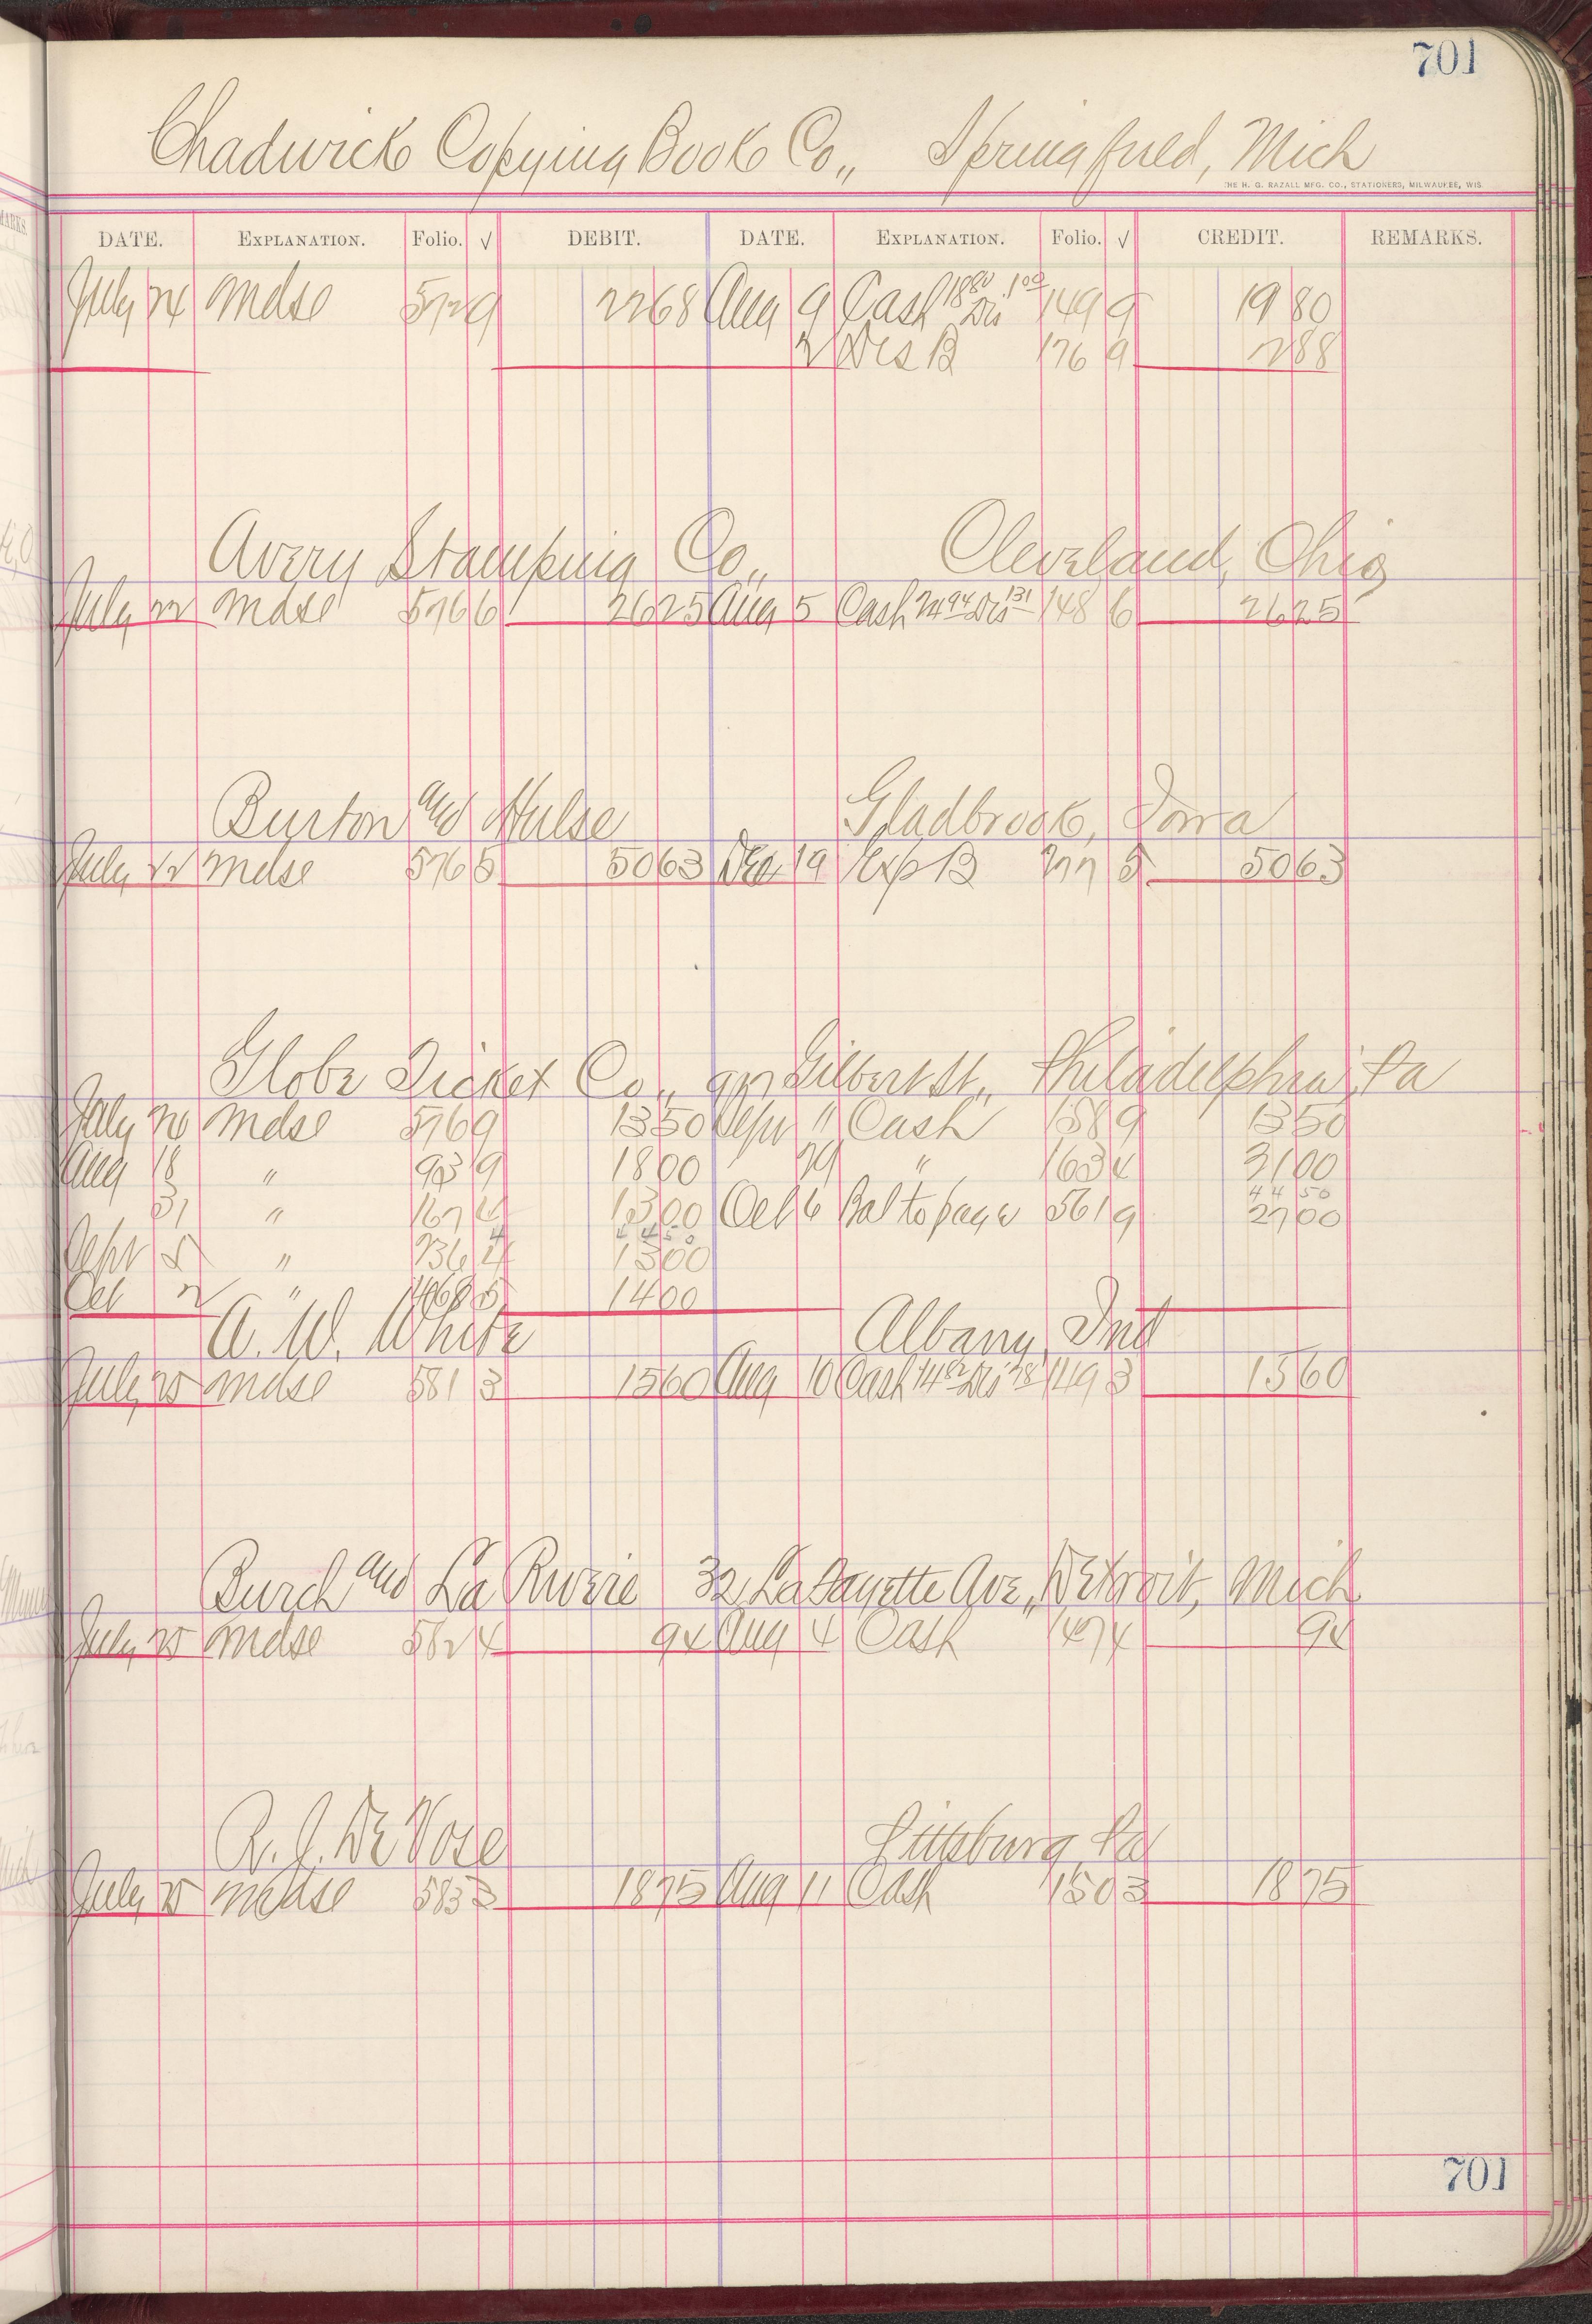 701
Chadwick Copying Book Co,, Springfield, Mich
THE H. G. RAZALL MFG. CO., STATIONERS, MILWAUKEE, WIS.
DATE. EXPLANATION. Folio. √ DEBIT. DATE. EXPLANATION. Folio. √ CREDIT. REMARKS.
July 24 Mdse 572 9 22 68 Aug 9 Cash 18 80 Dis 1 00 149 9 19 80
2 Des B 176 9 2 88
Avery Stamping Co,, Cleveland, Ohio
July 22 Mdse 576 6 26 25 Aug 5 Cash 24 94 Dis 1 31 148 6 26 25
Burton and Hulse Gladbrook, Iowa
July 22 Mdse 576 5 50 63 Dec 19 Exp B 277 5 50 63
Globe Ticket Co,, Gilbert St,, Philadelphia, Pa
July 20 Mdse 576 9 13 50 Sept 11 Cash 158 9 13 50
Aug 18 " 93 9 18 00 29 " 163 4 31 00
31 " 167 4 13 00 Oct 6 Bal to page 561 9 44 50
27 00
44 50
Sept 8 " 236 4 13 00
Oct 2 " 468 5 14 00
A. W. White Albany, Ind
July 25 Mdse 581 3 15 60 Aug 10 Cash 14 82 Dis 78 149 3 15 60
Burch and La Riviere 32 La Fayette Ave,, Detroit, Mich
July 25 Mdse 582 4 94 Aug 4 Cash 147 4 94
R. J. DeVose Pittsburg Pa
July 25 Mdse 583 3 18 75 Aug 11 Cash 150 3 18 75
701